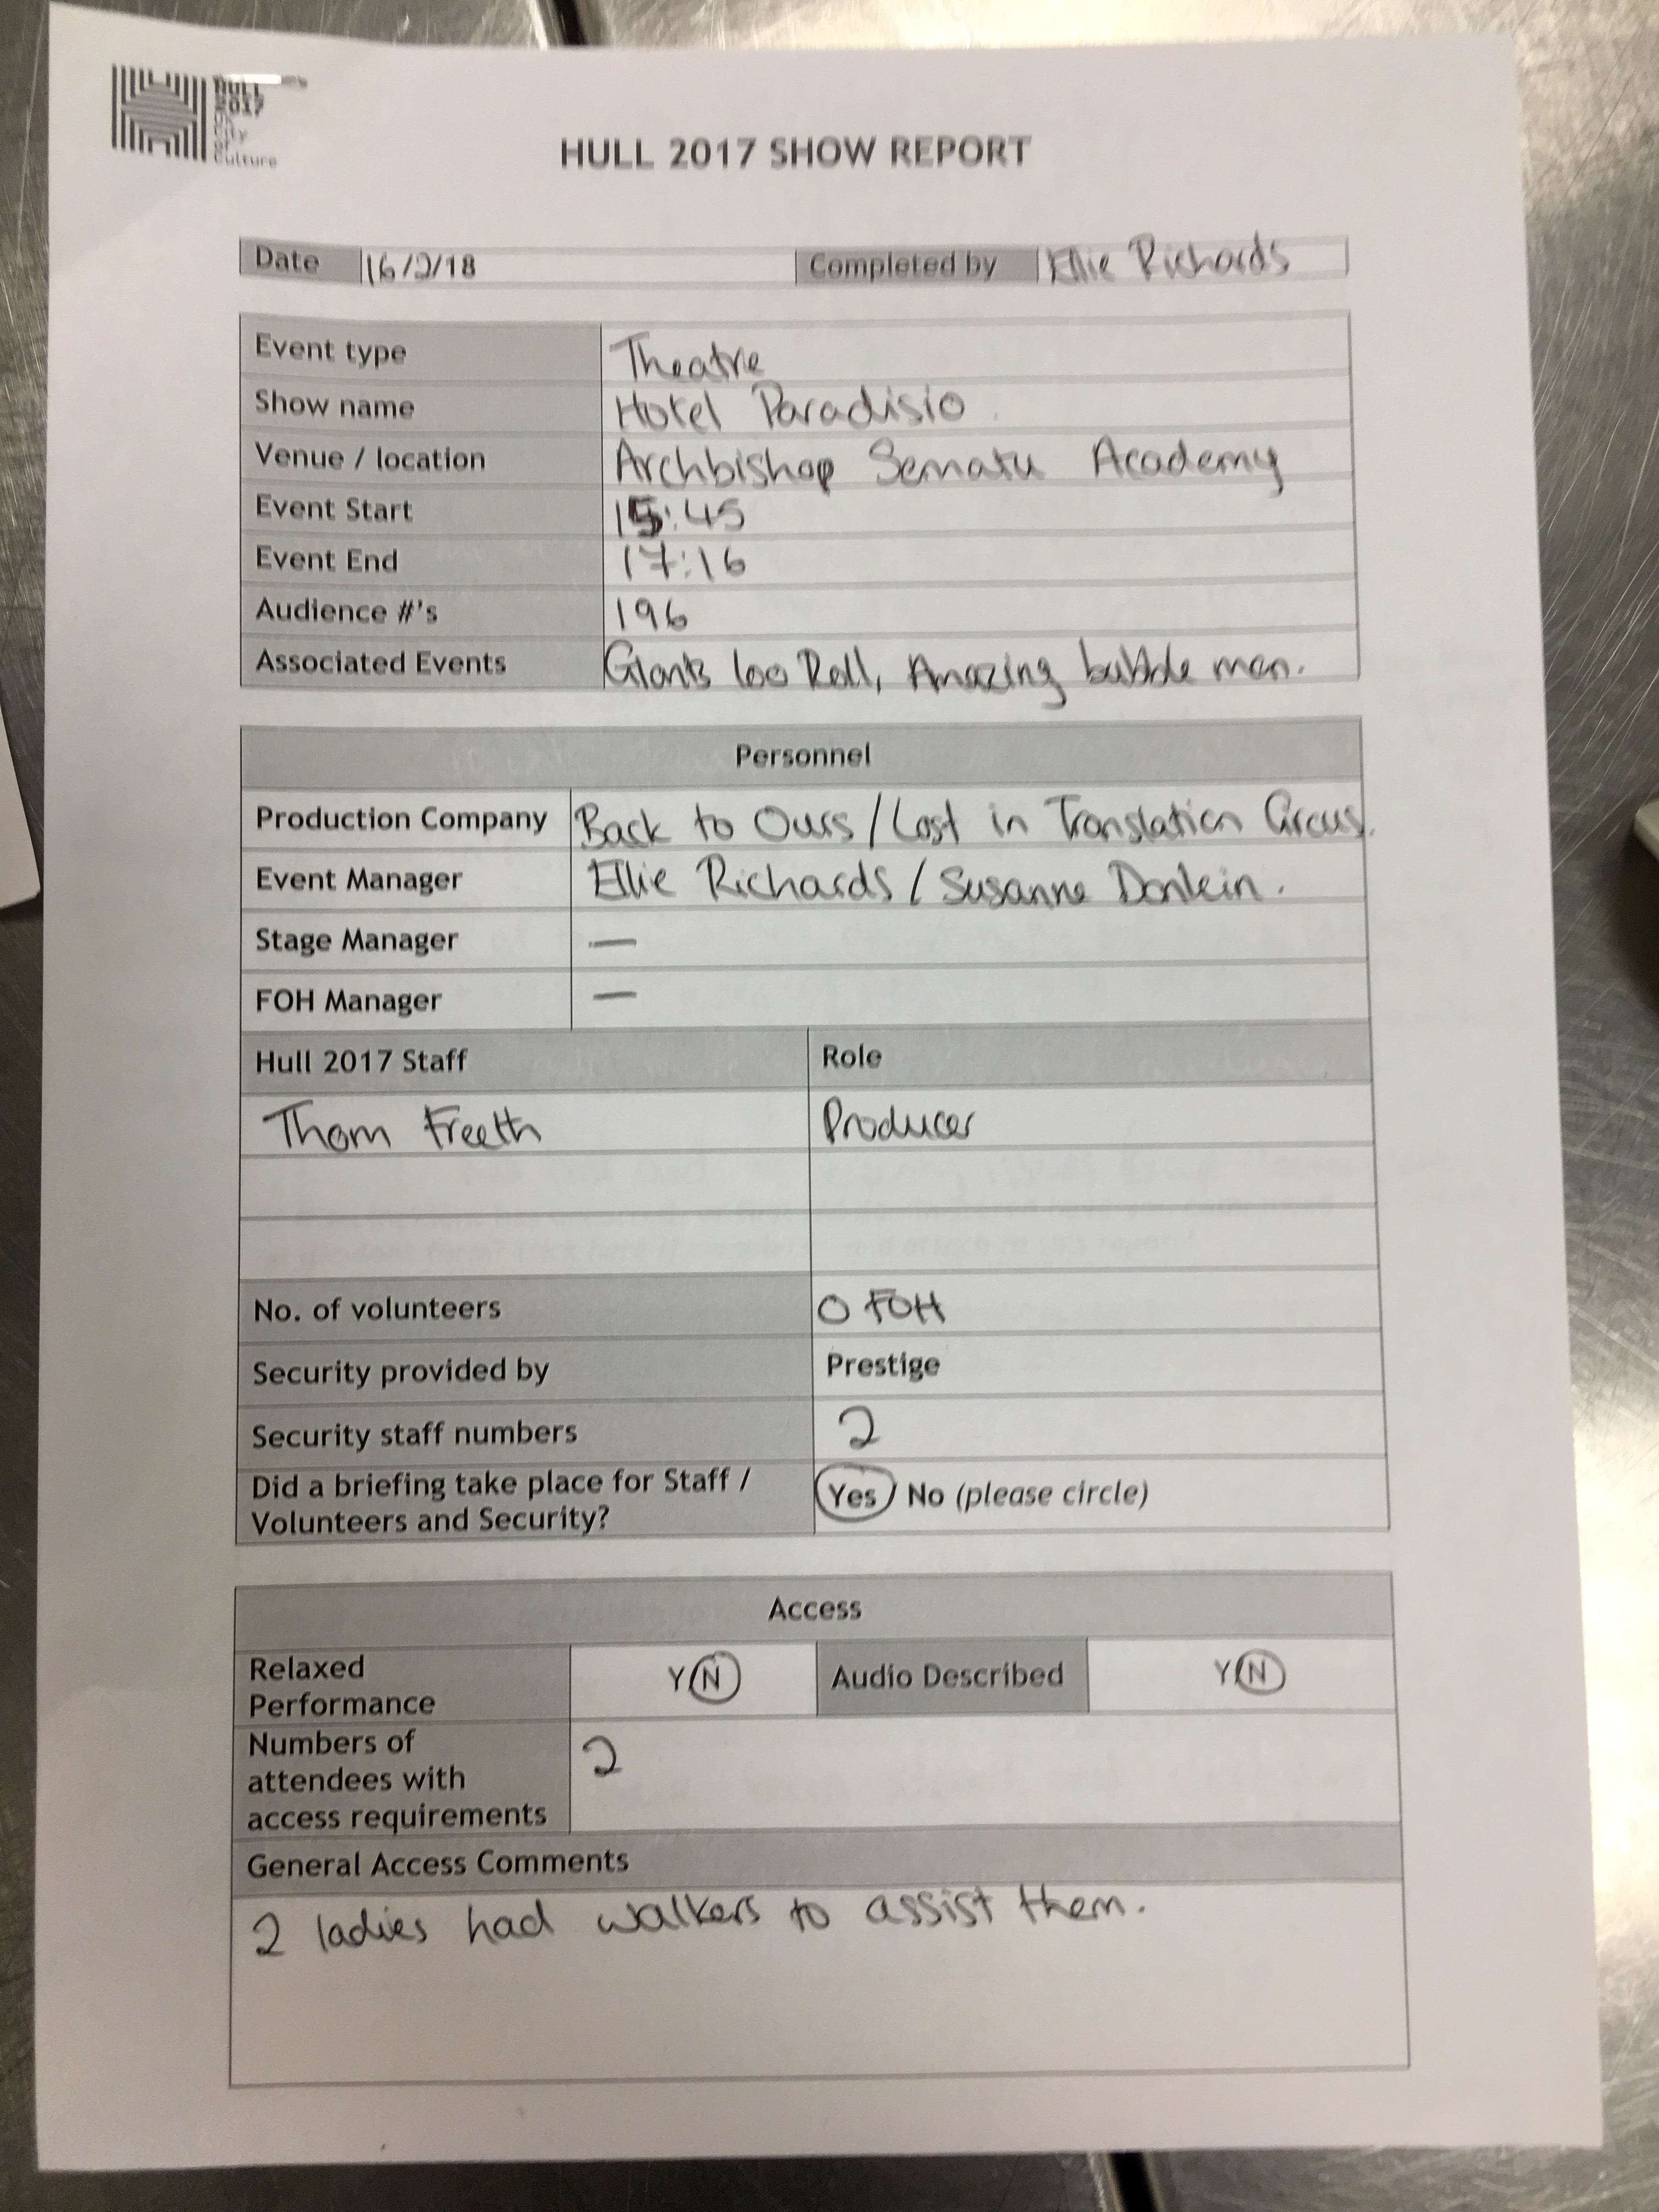 HULL
2017
UK
City
of
Culture
HULL 2017 SHOW REPORT
Date 16/2/18 Completed by Ellie Richards
Event type Theatre
Show name Hotel Paradisio
Venue / location Archbishop Sentamu Academy
Event Start 15:45
Event End 17:16
Audience #'s 196
Associated Events Giants Loo Roll, Amazing bubble man.
Personnel
Production Company Back to Ours / Lost in Translation Circus.
Event Manager Ellie Richards / Susanne
Stage Manager —
FOH Manager —
Hull 2017 Staff Role
Thom Freeth Producer
No. of volunteers 0 FOH
Security provided by Prestige
Security staff numbers 2
Did a briefing take place for Staff / Yes / No (please circle)
Volunteers and Security?
Access
Relaxed Y/N Audio Described Y/N
Performance
Numbers of 2
attendees with
access requirements
General Access Comments
2 ladies had walkers to assist them.